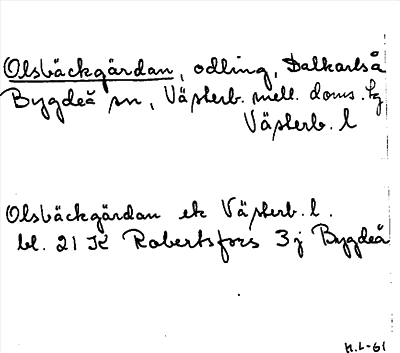 Olsbäckgärdan, odling, Dalkarlså
Bygdeå sn, Västerb. mell. doms. tg
Västerb. l
Olsbäckgärdan ek Västerb. l.
bl. 21 K Robertsfors 3 j Bygdeå
H.L-61